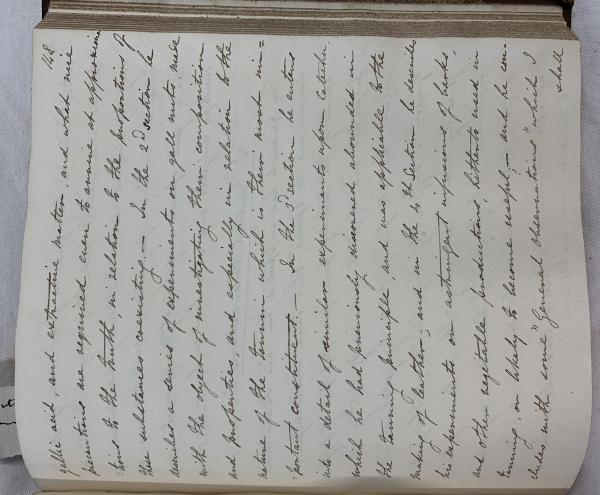 148
gallic acid, and extractive matter, and what nice
precautions are required even to arrive at approxima
-tions to the truth, in relation to the proportions of
these substances coexisting. — In the 2d section he
describes a series of experiments on gall nuts made
with the object of investigating their composition
and properties, and especially in relation to the
nature of the tannin which is their most im=
-portant constituent. — In the 3d section he enters
into a detail of similar experiments upon Catechu
which he had previously discovered abounded in
the tanning principle, and was applicable to the
making of leather; and in the 4th Section he describes
his experiments on astringent infusions of barks,
and other vegetable productions, hitherto used in
tanning, or likely to become useful; — and he con-
cludes with some "General observations" which I
shall